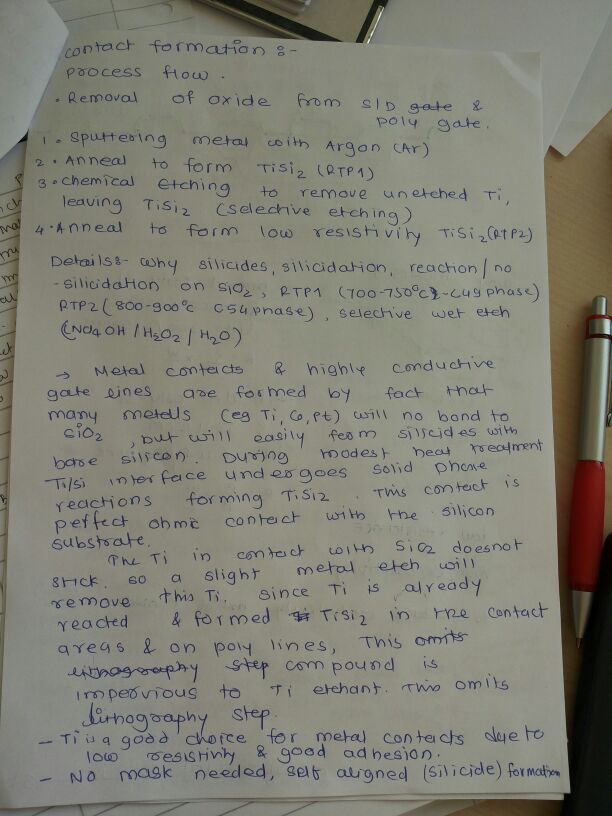 contact formation :-
process flow.
• Removal of oxide from S/D gate &
poly gate.
1 • Sputtering metal with Argon (Ar)
2 • Anneal to form TiSi2 (RTP1)
3 • chemical etching to remove unetched Ti,
leaving TiSi2 (selective etching)
4 • Anneal to form low resistivity TiSi2 (RTP2)
Details:- why silicides, silicidation, reaction/no
-silicidation on SiO2, RTP1 (700-750°C)-C49 phase)
RTP2 (800-900°C C54 phase), selective wet etch
(NO4OH / H2O2 / H2O)
→ Metal contacts & highly conductive
gate lines are formed by fact that
many metals (eg Ti, Co, Pt) will no bond to
SiO2, but will easily form silicides with
bare silicon During modest heat treatment
Ti/Si interface undergoes solid phase
reactions forming TiSi2. This contact is
perfect ohmic contact with the silicon
substrate.
The Ti in contact with SiO2 doesnot
stick. so a slight metal etch will
remove this Ti. since Ti is already
reacted & formed Ti TiSi2 in the contact
areas & on poly lines, This omits
lithography step compound is
impervious to Ti etchant. This omits
lithography step.
- Ti is a good choice for metal contacts due to
low resistivity & good adhesion.
- No mask needed, self aligned (silicide) formation